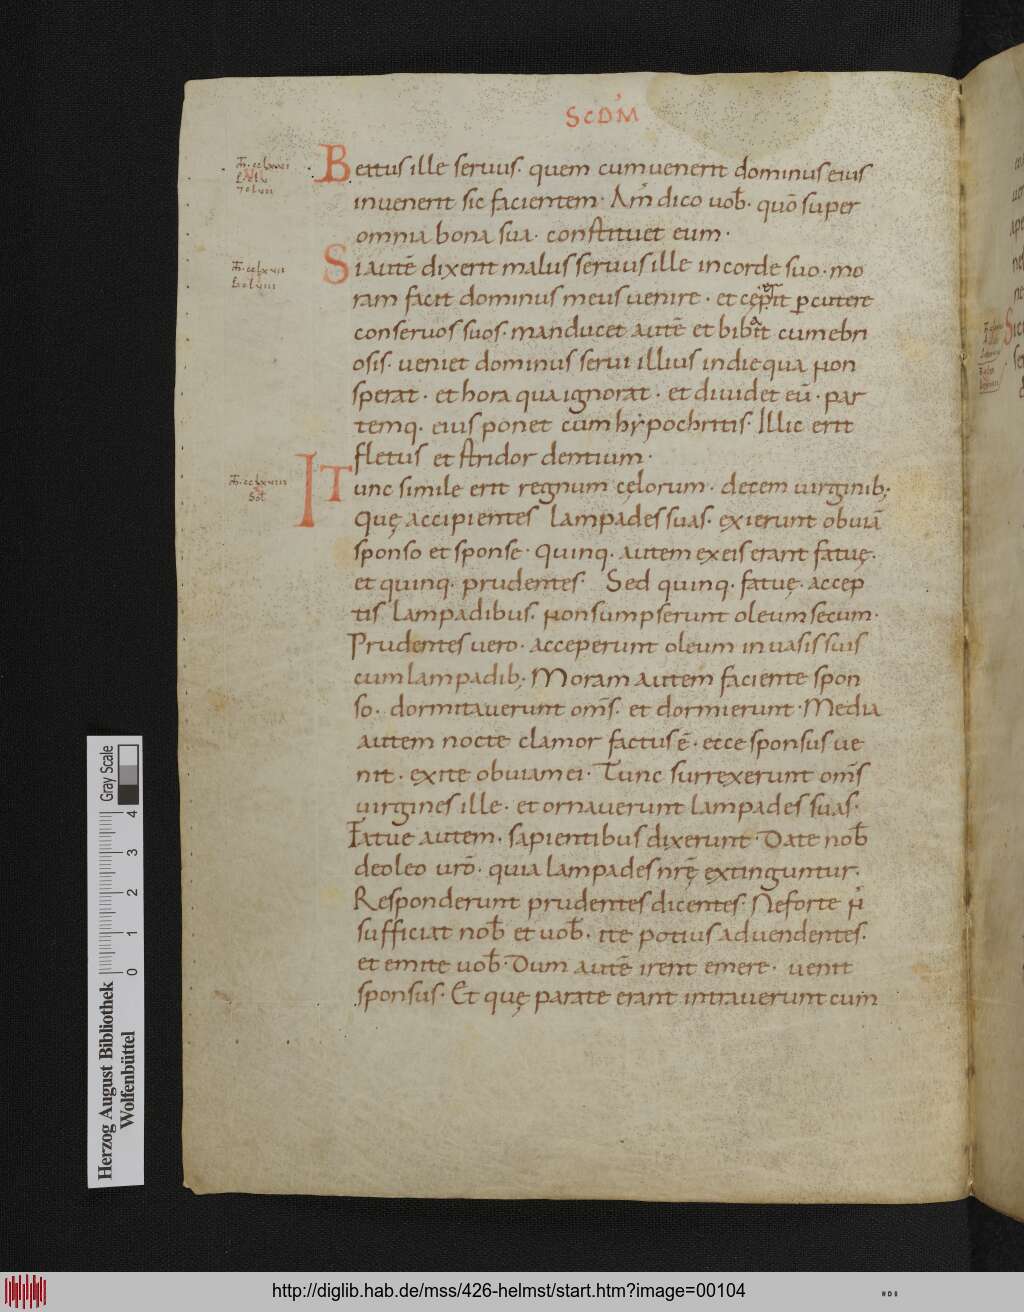 SCDM̄
Beatus ille seruus· quem cum uenerit dominus eius
inuenerit sic facientem· Am̄ dico uob̄· quō super
omnia bona sua· constituet eum·
Si autē dixerit malus seruus ille in corde suo· mo
ram facit dominus meus uenire· et cęp̱it ꝑcutere
conseruos suos· manducet autē et bibat cum ebri
osis· ueniet dominus serui illius in die qua non
sperat· et hora qua ignorat· et diuidet eū· par
temq· eius ponet cum hypochritis· Illic erit
fletus et stridor dentium·
IT Tunc simile erit regnum cęlorum· decem uirginib;
Quę accipientes lampades suas· exierunt obuiā
sponso et sponse· Quinq· autem ex eis erant fatuę·
et quinq· prudentes· Sed quinq· fatuę· accep
tis lampadibus· non sumpserunt oleum secum·
Prudentes uero· acceperunt oleum in uasis suis
cum lampadib; Moram autem faciente spon
so· dormitauerunt om̄s· et dormierunt· Media
autem nocte clamor factus ē· ecce sponsus ue
nit· exite obuiam ei· Tunc surrexerunt om̄s
uirgines ille· et ornauerunt lampades suas·
Fatue autem· sapientibus dixerunt· Date nob̄
de oleo urō· quia lampades nrę̄ extinguntur·
Responderunt prudentes dicentes· Ne forte n̄
sufficiat nob̄ et uob̄· ite potius ad uendentes·
et emite uob̄· Dum autē irent emere· uenit
sponsus· Et quę parate erant intrauerunt cum
Gray Scale
0 1 2 3 4
Herzog August Bibliothek
Wolfenbüttel
http://diglib.hab.de/mss/426-helmst/start.htm?image=00104